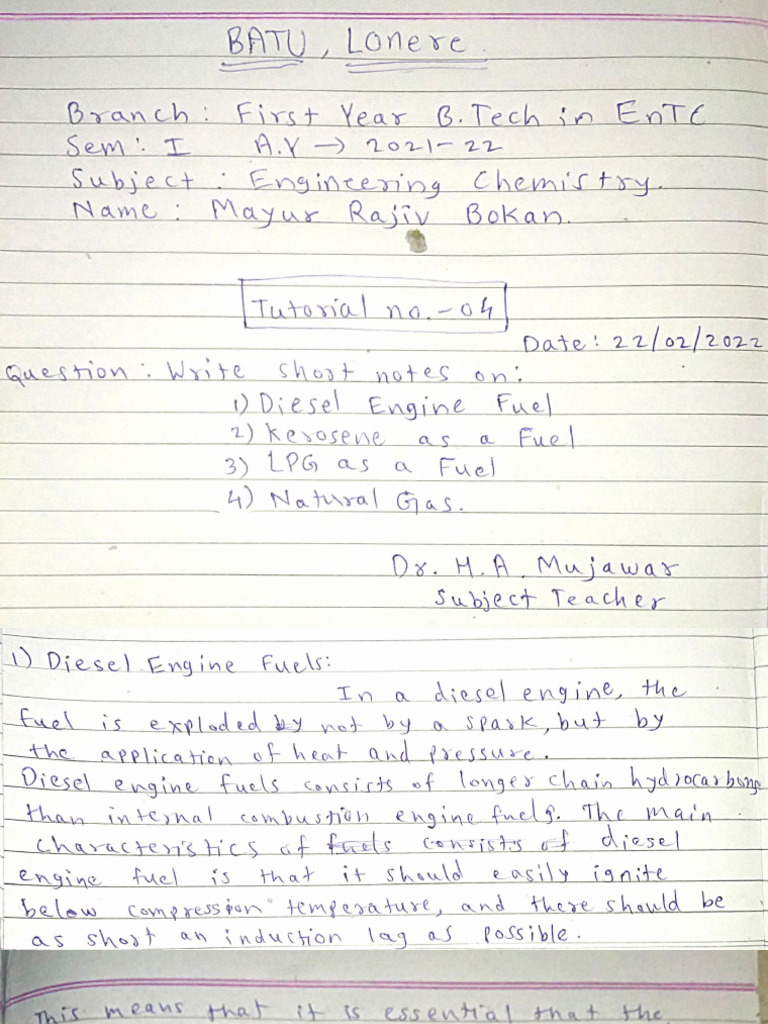 BATU, Lonere.
Branch: First Year B.Tech in EnTC
Sem: I A.Y → 2021-22
Subject: Engineering Chemistry.
Name: Mayur Rajiv Bokan.
Tutorial no.-04
Date: 22/02/2022
Question: Write short notes on:
1) Diesel Engine Fuel
2) Kerosene as a Fuel
3) LPG as a Fuel
4) Natural Gas.
Dr. H.A. Mujawar
Subject Teacher
1) Diesel Engine Fuels:
In a diesel engine, the
fuel is exploded by not by a spark, but by
the application of heat and pressure.
Diesel engine fuels consists of longer chain hydrocarbons
than internal combustion engine fuels. The main
characteristics of fuels consists of diesel
engine fuel is that it should easily ignite
below compression temperature, and there should be
as short an induction lag as possible.
This means that it is essential that the